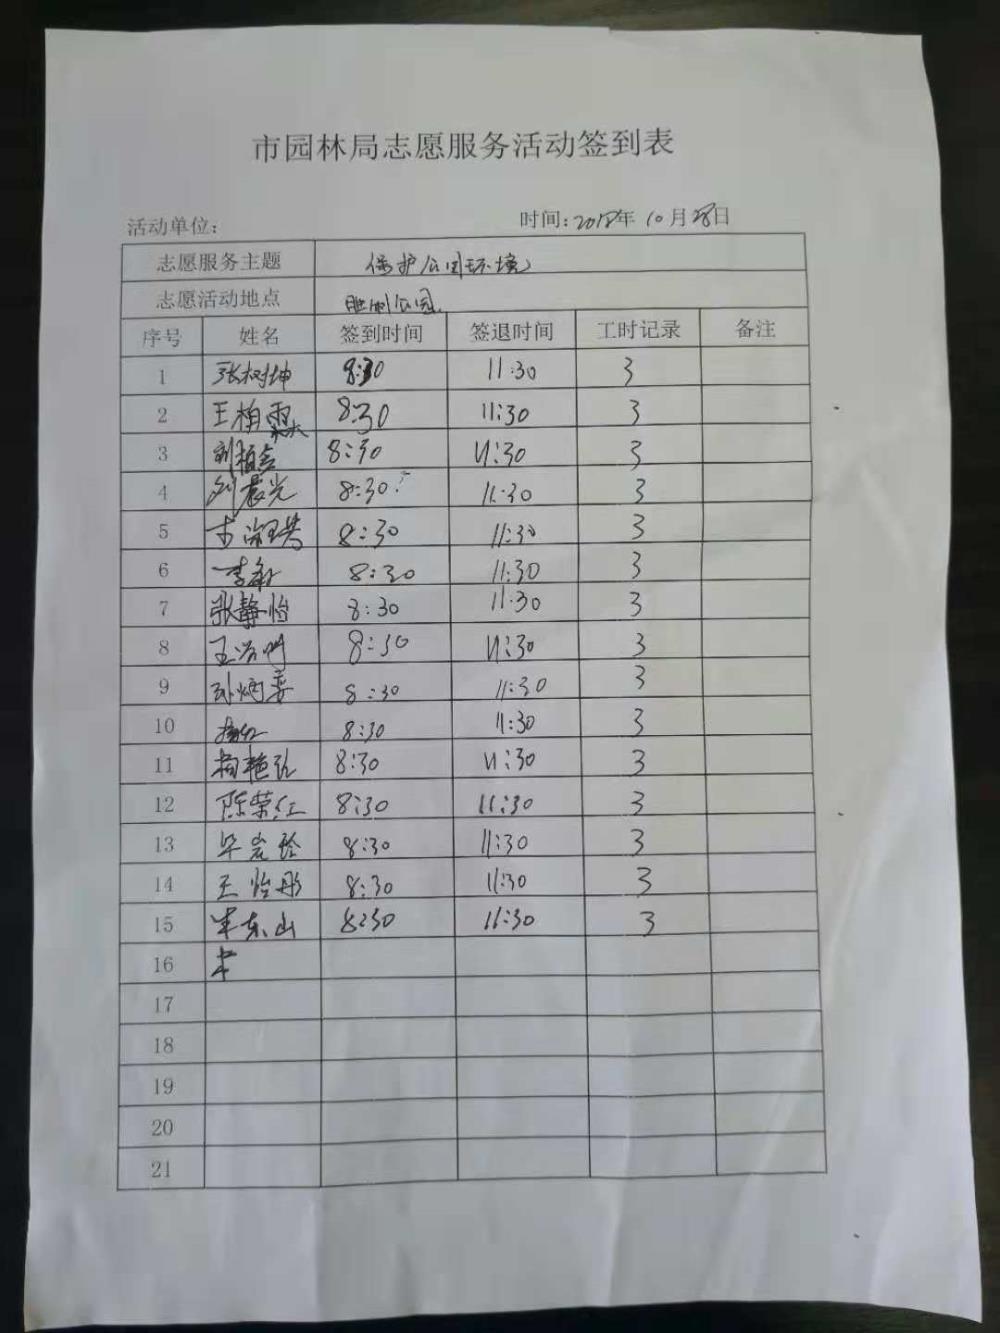 市园林局志愿服务活动签到表
活动单位： 时间：2018年10月28日
志愿服务主题 保护公园环境
志愿活动地点 胜利公园
序号 姓名 签到时间 签退时间 工时记录 备注
1 张树坤 8:30 11:30 3
2 王柏霖 8:30 11:30 3
3 8:30 11:30 3
4 刘晨光 8:30 11:30 3
5 8:30 11:30 3
6 李 8:30 11:30 3
7 张静怡 8:30 11:30 3
8 王 8:30 11:30 3
9 孙炳 8:30 11:30 3
10 8:30 11:30 3
11 8:30 11:30 3
12 陈荣红 8:30 11:30 3
13 毕岩玲 8:30 11:30 3
14 王怡彤 8:30 11:30 3
15 东山 8:30 11:30 3
16
17
18
19
20
21